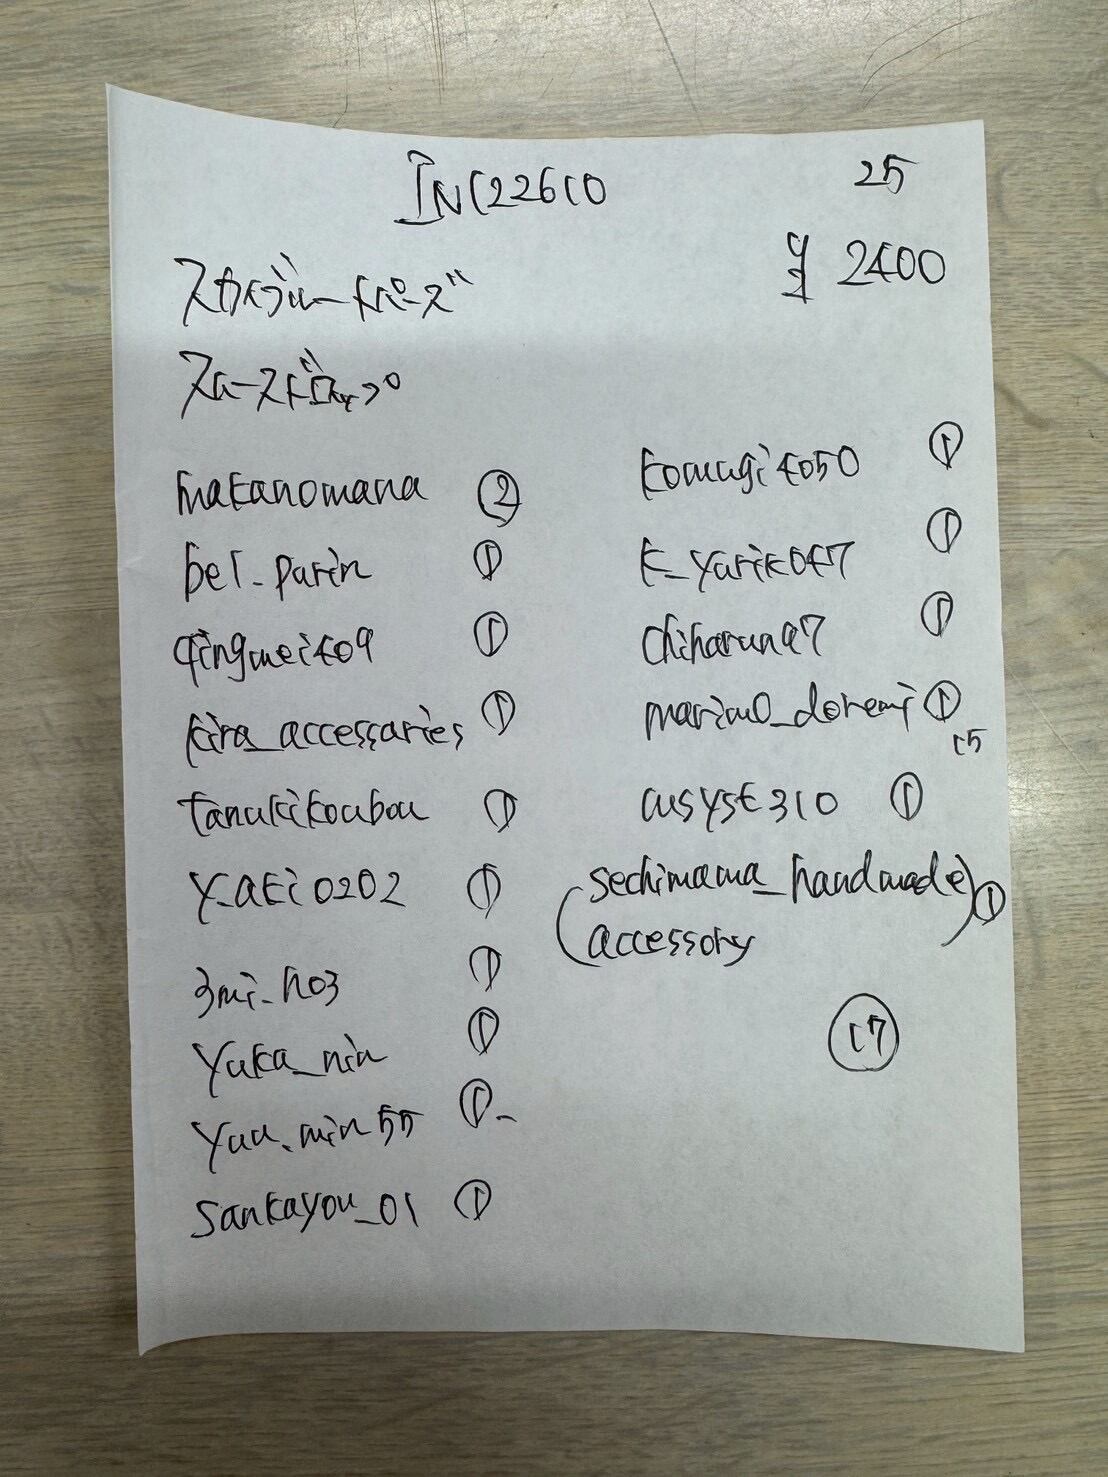 INC22610
25
¥ 2400
スカイブルートパーズ
スムースドロップ
makanomana ②
bel_parin ①
qingmei409 ①
kira_accessaries ①
tanukikoubou ①
y_aki0202 ①
3mi_h03 ①
yuka_nin ①
yuu.min55 ①
sankayou_01 ①
komugi4050 ①
k_yariko47 ①
chiharuna7 ①
marimo_doremi ①
15
cusyst310 ①
(sechimama_handmade) ①
accessory
⑰